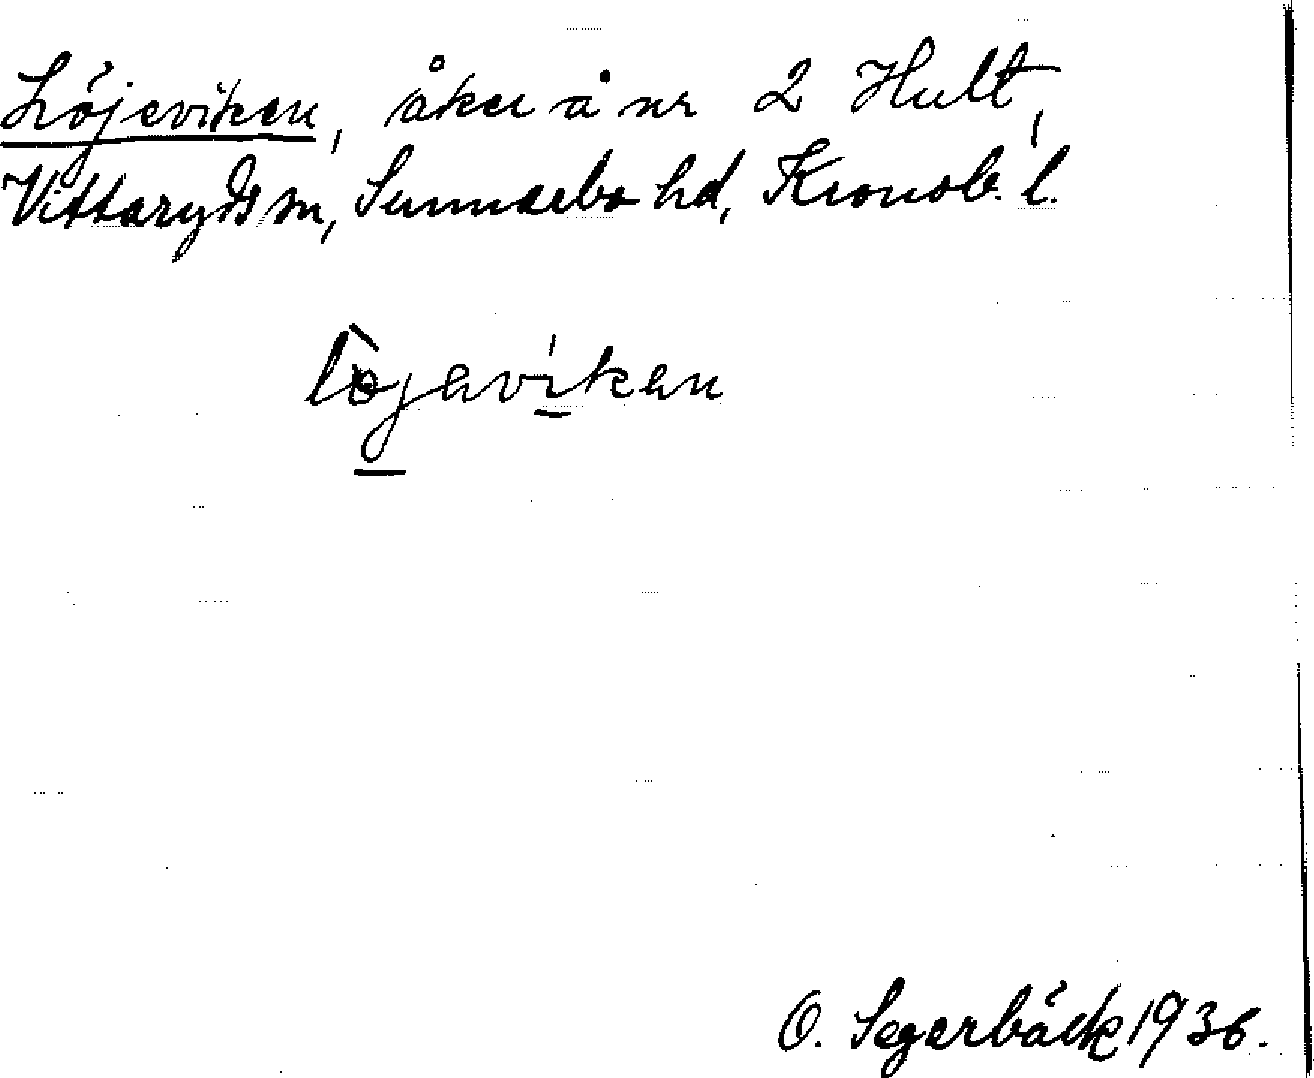 Löjeviken, åker å nr 2 Hult,
Vittaryds sn, Sunnerbo hd, Kronob. l.
lö̀javíken
O. Segerbäck 1936.